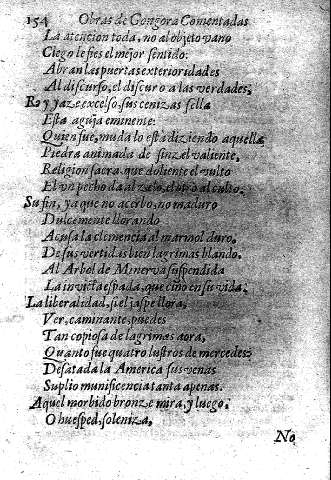 154 Obras de Gongora Comentadas
La atencion toda, no al objeto vano
Ciego le fies el mejor sentido:
Abran las puertas exterioridades
Al discurso, el discurso a las verdades.
Rey yaze excelso, sus cenizas sella
Esta aguja eminente:
Quien fue, mudo lo està diziendo aquella
Piedra animada de sinzel valiente,
Religion sacra, que doliente el vulto
El vn pecho da al zelo, el otro al culto.
Su fin, ya que no acerbo, no maduro
Dulcemente llorando
Acusa la clemencia al marmol duro,
De sus vertidas bien lagrimas blando.
Al Arbol de Minerva suspendida
La invicta espada, que ciñò en su vida.
La liberalidad, si el jaspe llora,
Ver, caminante, puedes
Tan copiosa de lagrimas aora,
Quanto fue quatro lustros de mercedes:
Desatada la America sus venas
Suplio munificencia tanta apenas.
Aquel morbido bronze mira, y luego,
O huesped, soleniza,
No